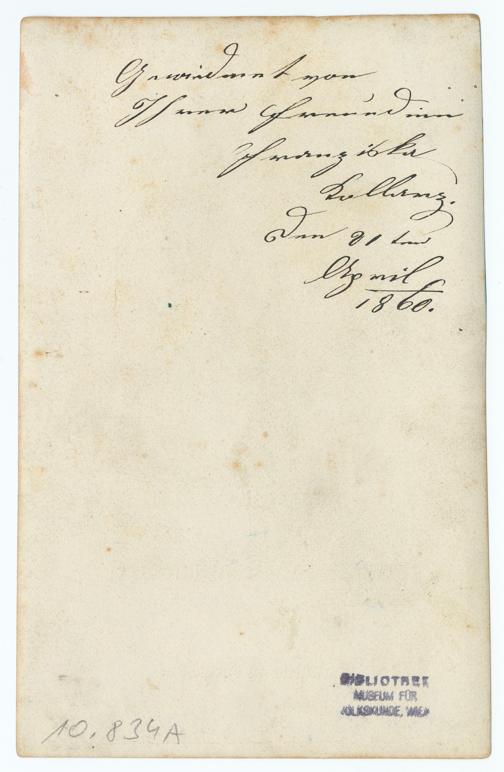 Gewidmet von
Ihrer Freundinn
Franziska
Kollarz.
Den 21ten
April
1860.
BIBLIOTHEK
MUSEUM FÜR
VOLKSKUNDE, WIEN
10.834A